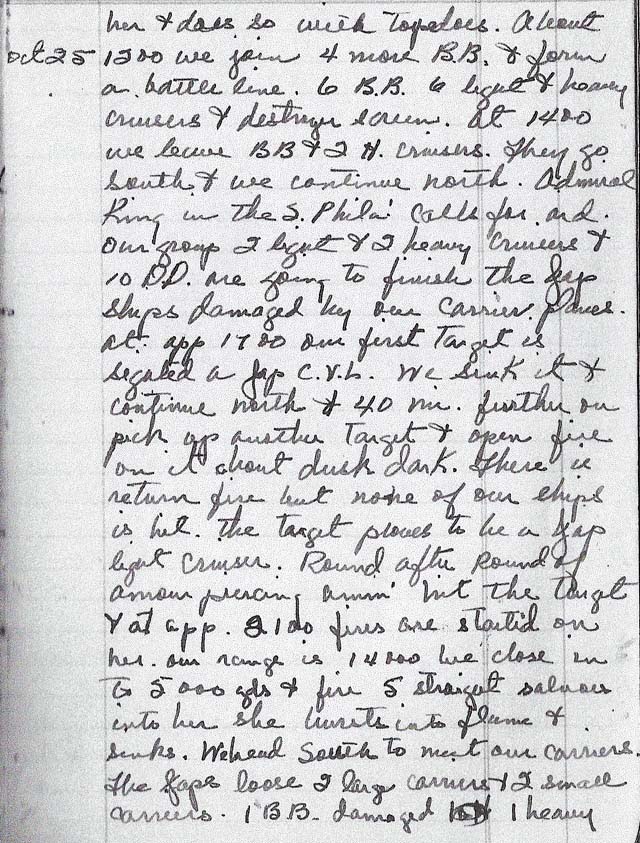 her & does so with Topedoes. About
Oct 25 1200 we join 4 more B.B. & form
a battle line. 6 B.B. 6 light & heavy
cruisers & destroyer screen. at 1400
we leave BB & 2 H. cruisers. They go
South & we continue north. Admiral
King in the S. Phila' calls for and.
our group 2 light & 2 heavy cruisers &
10 D.D. are going to finish the Jap
ships damaged by our carrier planes.
at app 1700 our first Target is
segated a Jap C.V.L. We sink it &
continue north & 40 mi. further on
pick up another Target & open fire
on it about dusk dark. There is
return fire but none of our ships
is hit. The target proves to be a Jap
light cruiser. Round after Round of
amour piercing amm' hit the target
& at app. 2100 fires are started on
her. our range is 14000 we close in
to 5000 yds & fire 5 straight salvoes
into her she bursts into flame &
sinks. We head South to meet our carriers.
The Japs loose 2 large carriers & 2 small
carriers. 1 B.B. damaged 1 heavy